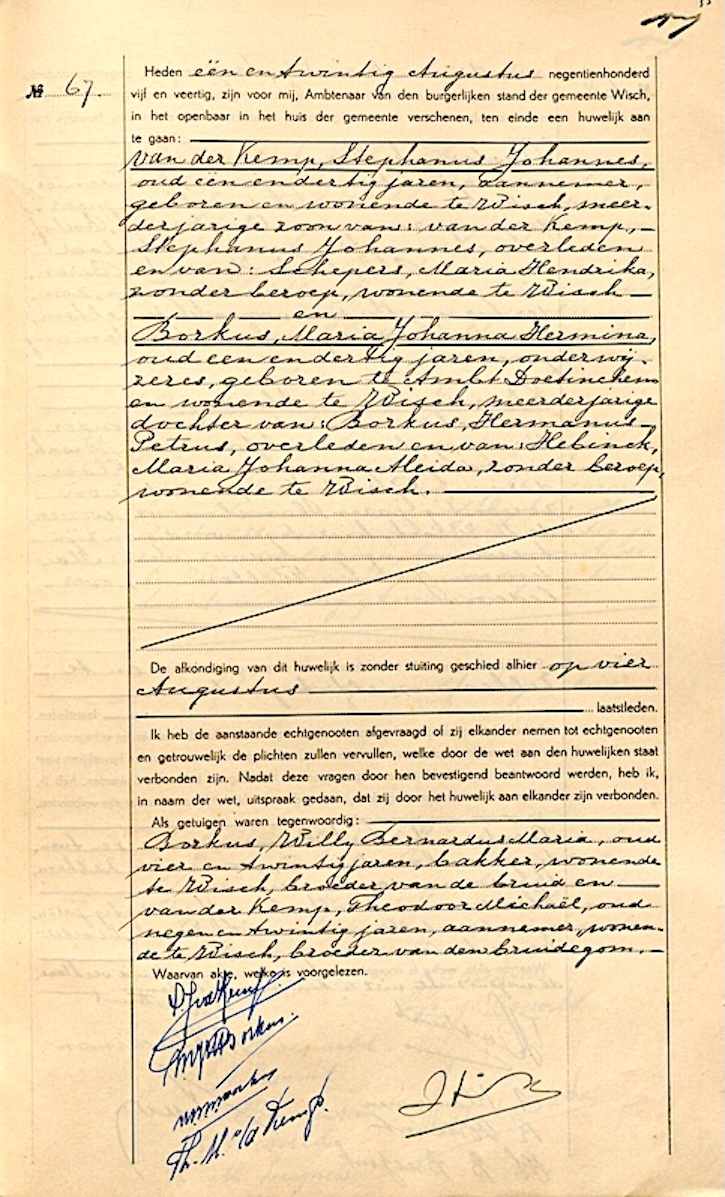 № 67.
Heden één en twintig Augustus negentienhonderd
vijf en veertig, zijn voor mij, Ambtenaar van den burgerlijken stand der gemeente Wisch,
in het openbaar in het huis der gemeente verschenen, ten einde een huwelijk aan
te gaan:
van der Kemp, Stephanus Johannes,
oud een en dertig jaren, aannemer,
geboren en wonende te Wisch, meer-
derjarige zoon van: van der Kemp,
Stephanus Johannes, overleden
en van: Schepers, Maria Hendrika,
zonder beroep, wonende te Wisch
en
Borkus, Maria Johanna Hermina,
oud een en dertig jaren, onderwij-
zeres, geboren te Ambt Doetinchem
en wonende te Wisch, meerderjarige
dochter van: Borkus, Hermanus
Petrus, overleden en van: Hebinck,
Maria Johanna Aleida, zonder beroep,
wonende te Wisch.
De afkondiging van dit huwelijk is zonder stuiting geschied alhier op vier
Augustus
laatstleden.
Ik heb de aanstaande echtgenooten afgevraagd of zij elkander nemen tot echtgenooten
en getrouwelijk de plichten zullen vervullen, welke door de wet aan den huwelijken staat
verbonden zijn. Nadat deze vragen door hen bevestigend beantwoord werden, heb ik,
in naam der wet, uitspraak gedaan, dat zij door het huwelijk aan elkander zijn verbonden.
Als getuigen waren tegenwoordig:
Borkus, Willy Bernardus Maria, oud
vier en twintig jaren, bakker, wonende
te Wisch, broeder van de bruid en
van der Kemp, Theodoor Michaël, oud
negen en twintig jaren, aannemer, wonen-
de te Wisch, broeder van den bruidegom.
Waarvan akte, welke is voorgelezen.
Borkus.
Th. M. v/d Kemp.